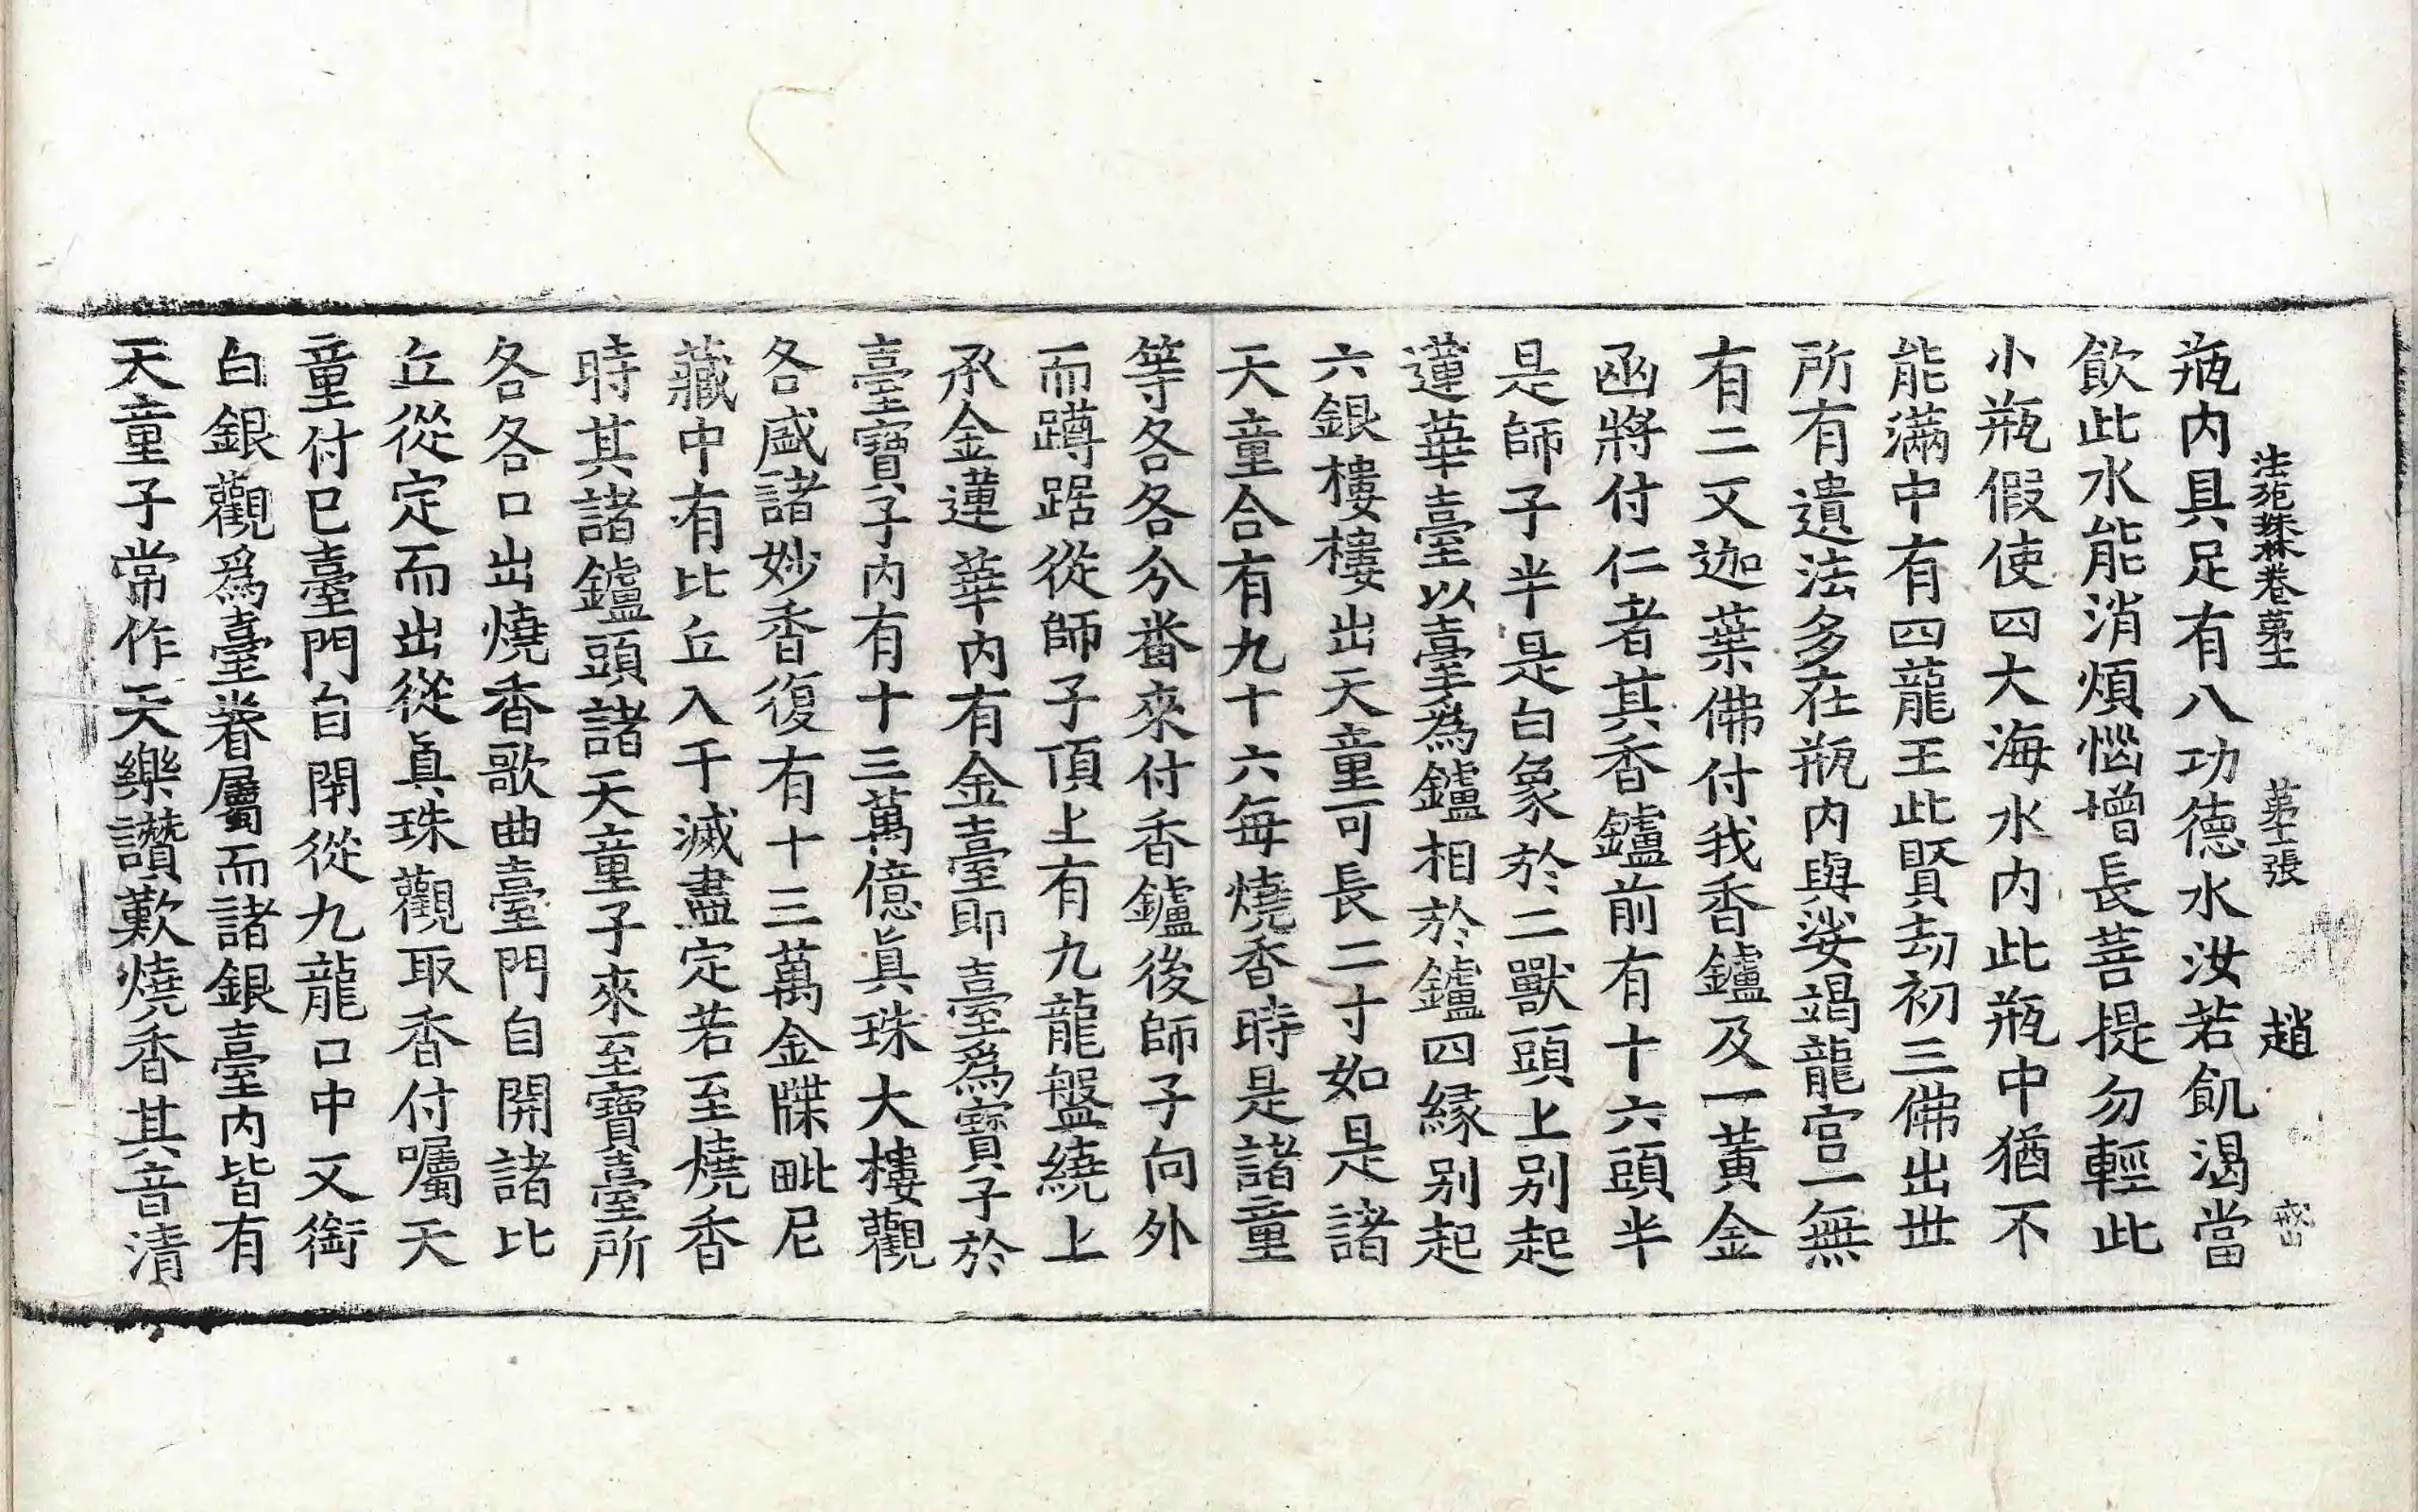 法苑珠林卷苐十二 苐十二張 趙
瓶内具足有八功德水汝若飢渴當
飲此水能消煩惱增長菩提勿輕此
小瓶假使四大海水内此瓶中猶不
能滿中有四龍王此賢劫初三佛出世
所有遺法多在瓶内與娑竭龍宫一無
有二又迦葉佛付我香鑪及一黃金
函將付仁者其香鑪前有十六頭半
是師子半是白象於二獸頭上别起
蓮華臺以臺爲鑪相於鑪四緣别起
六銀樓樓出天童可長二寸如是諸
天童合有九十六每燒香時是諸童
等各各分番來付香鑪後師子向外
而蹲踞從師子頂上有九龍盤繞上
承金蓮華内有金臺即臺爲寶子於
臺寶子内有十三萬億眞珠大樓觀
各盛諸妙香復有十三萬金牒毗尼
藏中有比丘入于滅盡定若至燒香
時其諸鑪頭諸天童子來至寶臺所
各各口出燒香歌曲臺門自開諸比
丘從定而出從眞珠觀取香付囑天
童付已臺門自閇從九龍口中又銜
白銀觀爲臺眷屬而諸銀臺内皆有
天童子常作天樂讚歎燒香其音清